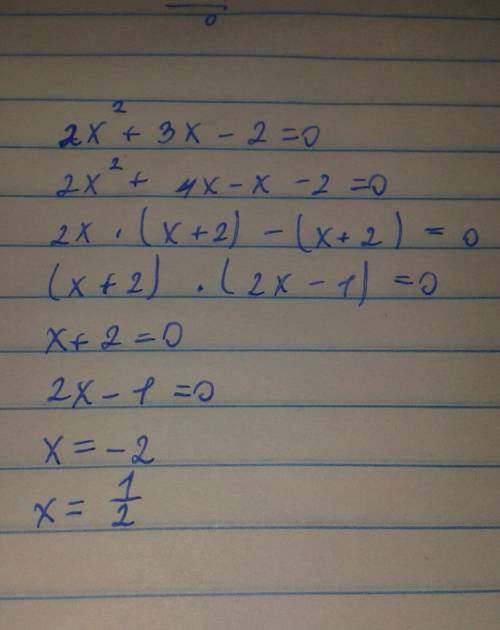 0
2x² + 3x - 2 = 0
2x² + 4x - x - 2 = 0
2x · (x + 2) - (x + 2) = 0
(x + 2) · (2x - 1) = 0
x + 2 = 0
2x - 1 = 0
x = -2
x = 1/2